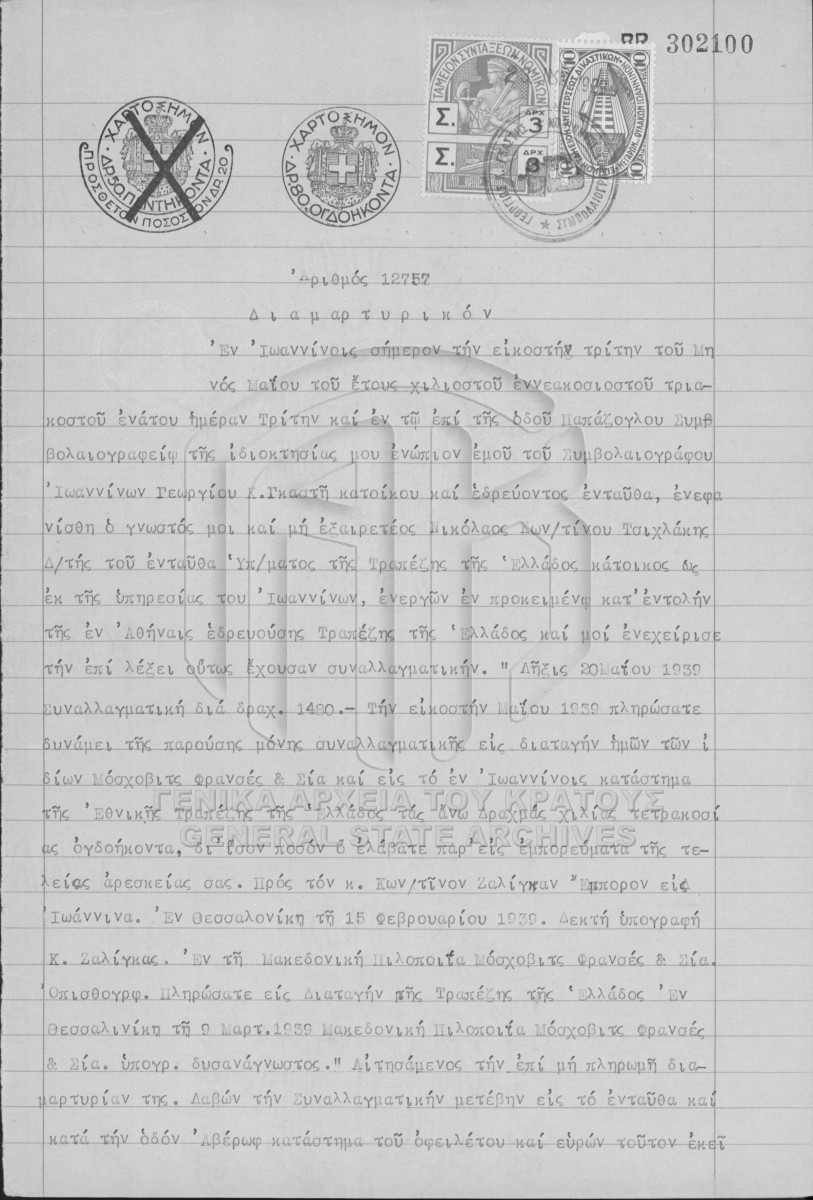 302100
ΧΑΡΤΟΣΗΜΟΝ
ΔΡ.50.ΠΕΝΤΗΚΟΝΤΑ
ΠΡΟΣΘΕΤΟΝ ΠΟΣΟΣΤΟΝ ΔΡ.20
ΧΑΡΤΟΣΗΜΟΝ
ΔΡ.80.ΟΓΔΟΗΚΟΝΤΑ
ΤΑΜΕΙΟΝ ΣΥΝΤΑΞΕΩΝ ΝΟΜΙΚΩΝ
Σ. ΔΡΧ 3
Σ. ΔΡΧ
10 10
10 10
ΣΥΜΒΟΛΑΙΟΓΡ
Ἀριθμός 12757
Διαμαρτυρικόν
Ἐν Ἰωαννίνοις σήμερον τήν εἰκοστήν τρίτην τοῦ Μη
νός Μαΐου τοῦ ἔτους χιλιοστοῦ ἐννεακοσιοστοῦ τρια-
κοστοῦ ἐνάτου ἡμέραν Τρίτην καί ἐν τῷ ἐπί τῆς ὁδοῦ Παπάζογλου Συμβ
βολαιογραφείῳ τῆς ἰδιοκτησίας μου ἐνώπιον ἐμοῦ τοῦ Συμβολαιογράφου
Ἰωαννίνων Γεωργίου Κ.Γκαστῆ κατοίκου καί ἑδρεύοντος ἐνταῦθα, ἐνεφα
νίσθη ὁ γνωστός μοι καί μή ἐξαιρετέος Νικόλαος Κων/τίνου Τσιχλάκης
Δ/τής τοῦ ἐνταῦθα Ὑπ/ματος τῆς Τραπέζης τῆς Ἑλλάδος κάτοικος ὡς
ἐκ τῆς ὑπηρεσίας του Ἰωαννίνων, ἐνεργῶν ἐν προκειμένῳ κατ'ἐντολήν
τῆς ἐν Ἀθήναις ἑδρευούσης Τραπέζης τῆς Ἑλλάδος καί μοί ἐνεχείρισε
τήν ἐπί λέξει οὕτως ἔχουσαν συναλλαγματικήν. " Λῆξις 20Μαΐου 1939
Συναλλαγματική διά δραχ. 1480.- Τήν εἰκοστήν Μαΐου 1939 πληρώσατε
δυνάμει τῆς παρούσης μόνης συναλλαγματικῆς εἰς διαταγήν ἡμῶν τῶν ἰ
δίων Μόσχοβιτς Φρανσές & Σία καί εἰς τό ἐν Ἰωαννίνοις κατάστημα
τῆς Ἐθνικῆς Τραπέζης τῆς Ἑλλάδος τάς ἄνω Δραχμάς χιλίας τετρακοσί
ας ὀγδοήκοντα, δι'ἴσον ποσόν ὅ ἐλάβατε παρ'εἰς ἐμπορεύματα τῆς τε-
λείας ἀρεσκείας σας. Πρός τόν κ. Κων/τῖνον Ζαλίγκαν Ἔμπορον εἰς
Ἰωάννινα. Ἐν Θεσσαλονίκῃ τῇ 15 Φεβρουαρίου 1939. Δεκτή ὑπογραφή
Κ. Ζαλίγκας. Ἐν τῇ Μακεδονική Πιλοποιΐα Μόσχοβιτς Φρανσές & Σία.
Ὀπισθογρφ. Πληρώσατε εἰς Διαταγήν τῆς Τραπέζης τῆς Ἑλλάδος Ἐν
Θεσσαλινίκη τῇ 9 Μαρτ.1939 Μακεδονική Πιλοποιΐα Μόσχοβιτς Φρανσές
& Σία. ὑπογρ. δυσανάγνωστος." Αἰτησάμενος τήν ἐπί μή πληρωμῇ δια-
μαρτυρίαν της. Λαβών τήν Συναλλαγματικήν μετέβην εἰς τό ἐνταῦθα καί
κατά τήν ὁδόν Ἀβέρωφ κατάστημα τοῦ ὀφειλέτου καί εὑρών τοῦτον ἐκεῖ
ΓΕΝΙΚΑ ΑΡΧΕΙΑ ΤΟΥ ΚΡΑΤΟΥΣ
GENERAL STATE ARCHIVES